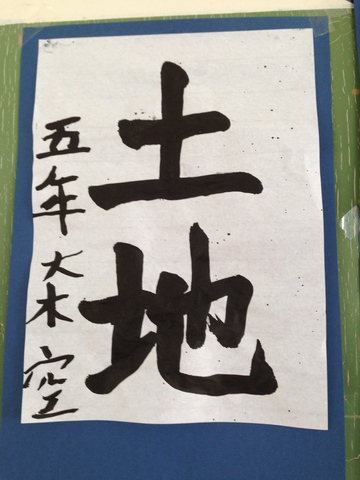 土地
五年 大木 空